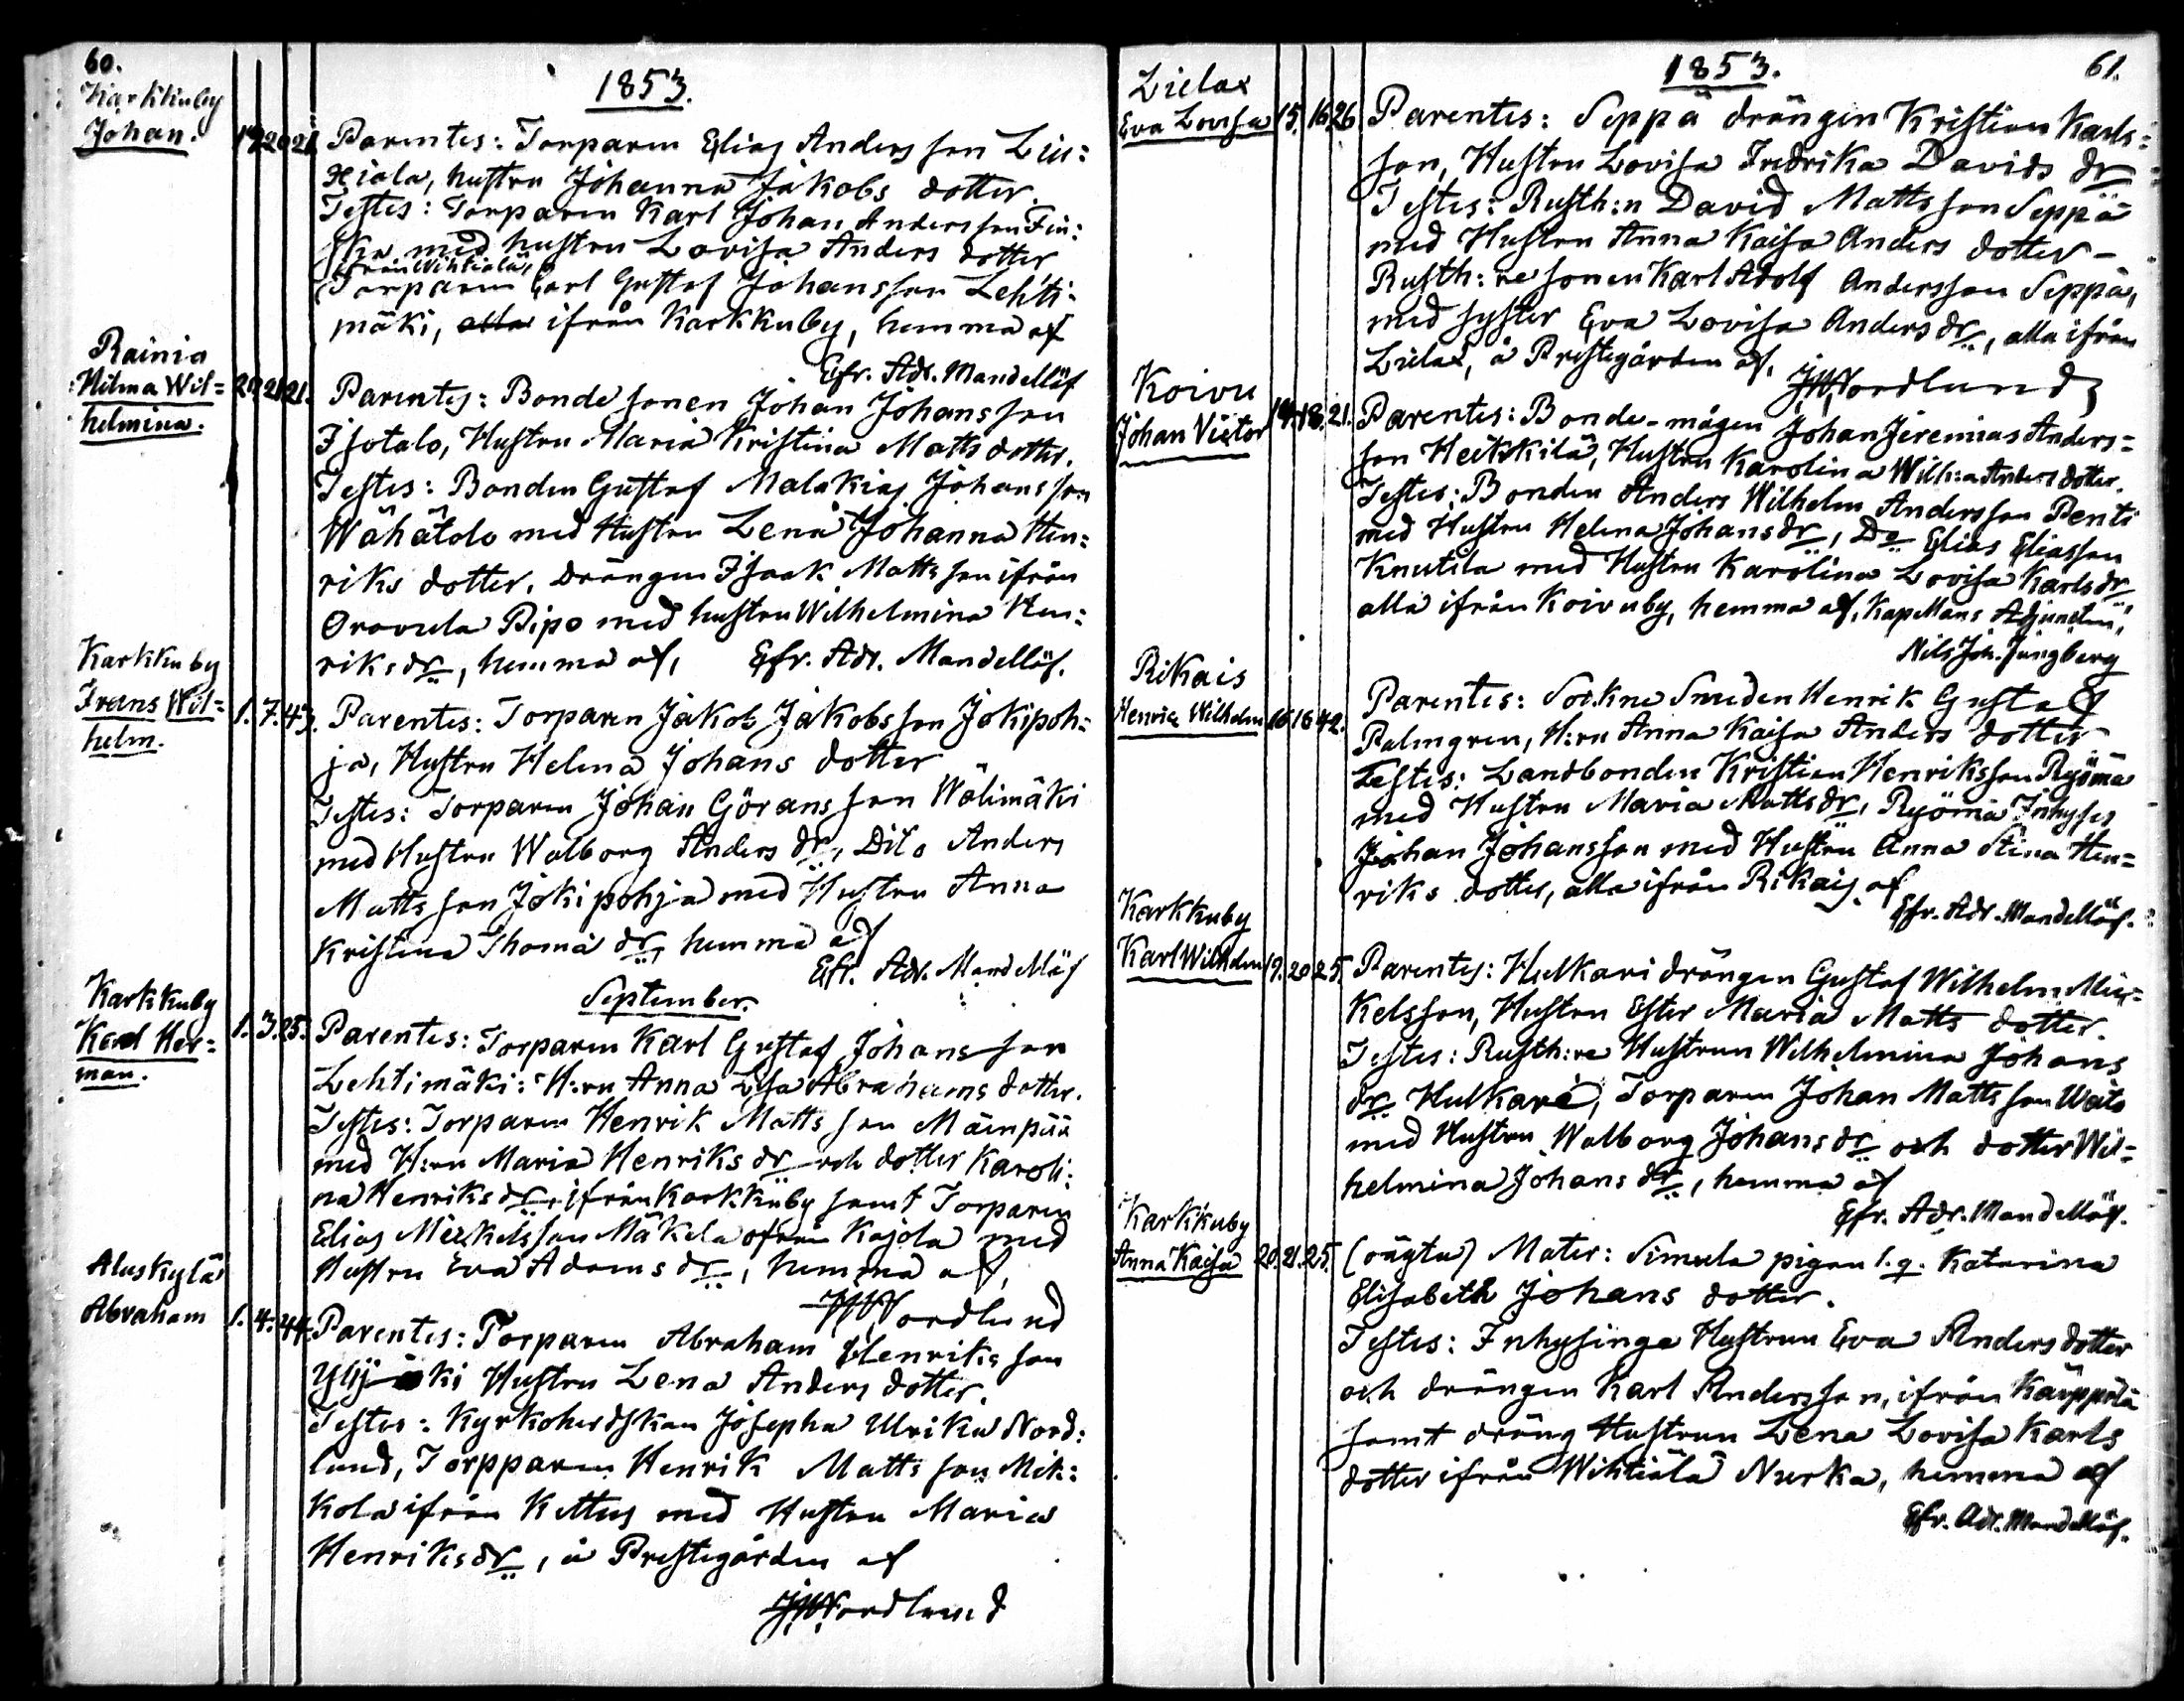 60.
1853.
Karkkuby
Johan.
19. 20. 21.
Parentes: Torparen Elias Andersson Liu:
xiala, hustru Johanna Jakobs dotter.
Testes: Torparen Karl Johan Andersson Fin:
ska med hustru Lovisa Anders dotter
ifrån Wihtiälä,
Torparen Carl Gustaf Johansson Lehti:
mäki, ifrån Karkkuby, hemma af
Efr. Adr. Mandellöf
Rainio
Hilma Wil=
helmina.
20. 21. 21.
Parentes: Bonde sonen Johan Johansson
Isotalo, Hustru Maria Kristina Matts dotter.
Testes: Bonden Gustaf Malakias Johansson
Wähätalo med Hustru Lena Johanna Hen:
riks dotter. Drängen Isaak Mattsson ifrån
Oravula Pipo med hustru Wilhelmina Hen:
riks dr, hemma af, Efr. Adr. Mandellöf.
Karkkuby
Frans Wil=
helm.
1. 7. 43.
Parentes: Torparen Jakob Jakobsson Jokipoh=
ja, Hustru Helena Johans dotter
Testes: Torparen Johan Göransson Wälimäki
med Hustru Walborg Anders dr, Dito Anders
Mattsson Jokipohja med Hustru Anna
Kristina Thomä dr, hemma af
Efr. Adr. Mandellöf
September.
Karkkuby
Karl Her=
man.
1. 3. 25.
Parentes: Torparen Karl Gustaf Johansson
Lehtimäki: H:ru Anna Lisa Abrahams dotter.
Testes: Torparen Henrik Mattsson Mäenpää
med H:ru Maria Henriks dr och dotter Karoli:
na Henriks dr, ifrån Karkkuby samt Torparen
Elias Mickelsson Mäkelä ifrån Kajola med
Hustru Eva Adams dr, hemma af,
JWNordlund
Aluskylä
Abraham
1. 4. 44.
Parentes: Torparen Abraham Henriksson
Ylijoki Hustru Lena Anders dotter.
Testes: Kyrkoherdskan Josepha Ulrika Nord:
lund, Torpparen Henrik Mattsson Mik:
kola ifrån Kettus med Hustru Maria
Henriks dr, å Prestegården af
JWNordlund
61.
1853.
Lielax
Eva Lovisa
15. 16. 26.
Parentes: Seppä drängen Kristian Karls=
son, Hustru Lovisa Fredrika Davids dr
Testes: Rusth:n David Mattsson Seppä
med Hustru Anna Kaisa Anders dotter –
Rusth:re sonen Karl Adolf Andersson Seppä,
med syster Eva Lovisa Anders dr, alla ifrån
Lielax, å Prestegården af. JWNordlund
Koivu
Johan Victor
14. 18. 21.
Parentes: Bonde-mågen Johan Jeremias Anders=
son Heikkilä, Hustru Karolina Wilh:a Anders dotter.
Testes: Bonden Anders Wilhelm Andersson Penti
med Hustru Helena Johans dr, Do Elias Eliasson
Knutila med Hustru Karolina Lovisa Karls dr,
alla ifrån Koivuby, hemma af, Kapellans Adjuncten,
Nils Joh. Jungberg
Rikais
Henric Wilhelm
16. 18. 42.
Parentes: Sockne Smeden Henrik Gustaf
Palmgren, H:ru Anna Kaisa Anders dotter
Testes: Landbonden Kristian Henriksson Ryömä
med Hustru Maria Matts dr, Ryömä Inhyses
Johan Johansson med Hustru Anna Stina Hen=
riks dotter, alla ifrån Rikais, af
Efr. Adr. Mandellöf.
Karkkuby
Karl Wilhelm
19. 20. 25.
Parentes: Hulkari drängen Gustaf Wilhelm Mic=
kelsson, Hustru Ester Maria Matts dotter.
Testes: Rusth:re Hustrun Wilhelmina Johans
dr Hulkari, Torparen Johan Mattsson Waito
med Hustru Walborg Johans dr och dotter Wil=
helmina Johans dr, hemma af
Efr. Adr. Mandellöf.
Karkkuby
Anna Kaisa
20. 21. 25.
(oägta) Mater: Simula pigan l.q. Katarina
Elisabeth Johans dotter.
Testes: Inhysinge Hustrun Eva Anders dotter
och drängen Karl Andersson, ifrån Kärppälä
samt dräng Hustrun Lena Lovisa Karls
dotter ifrån Wihtiälä Nurka, hemma af
Efr. Adr. Mandellöf.